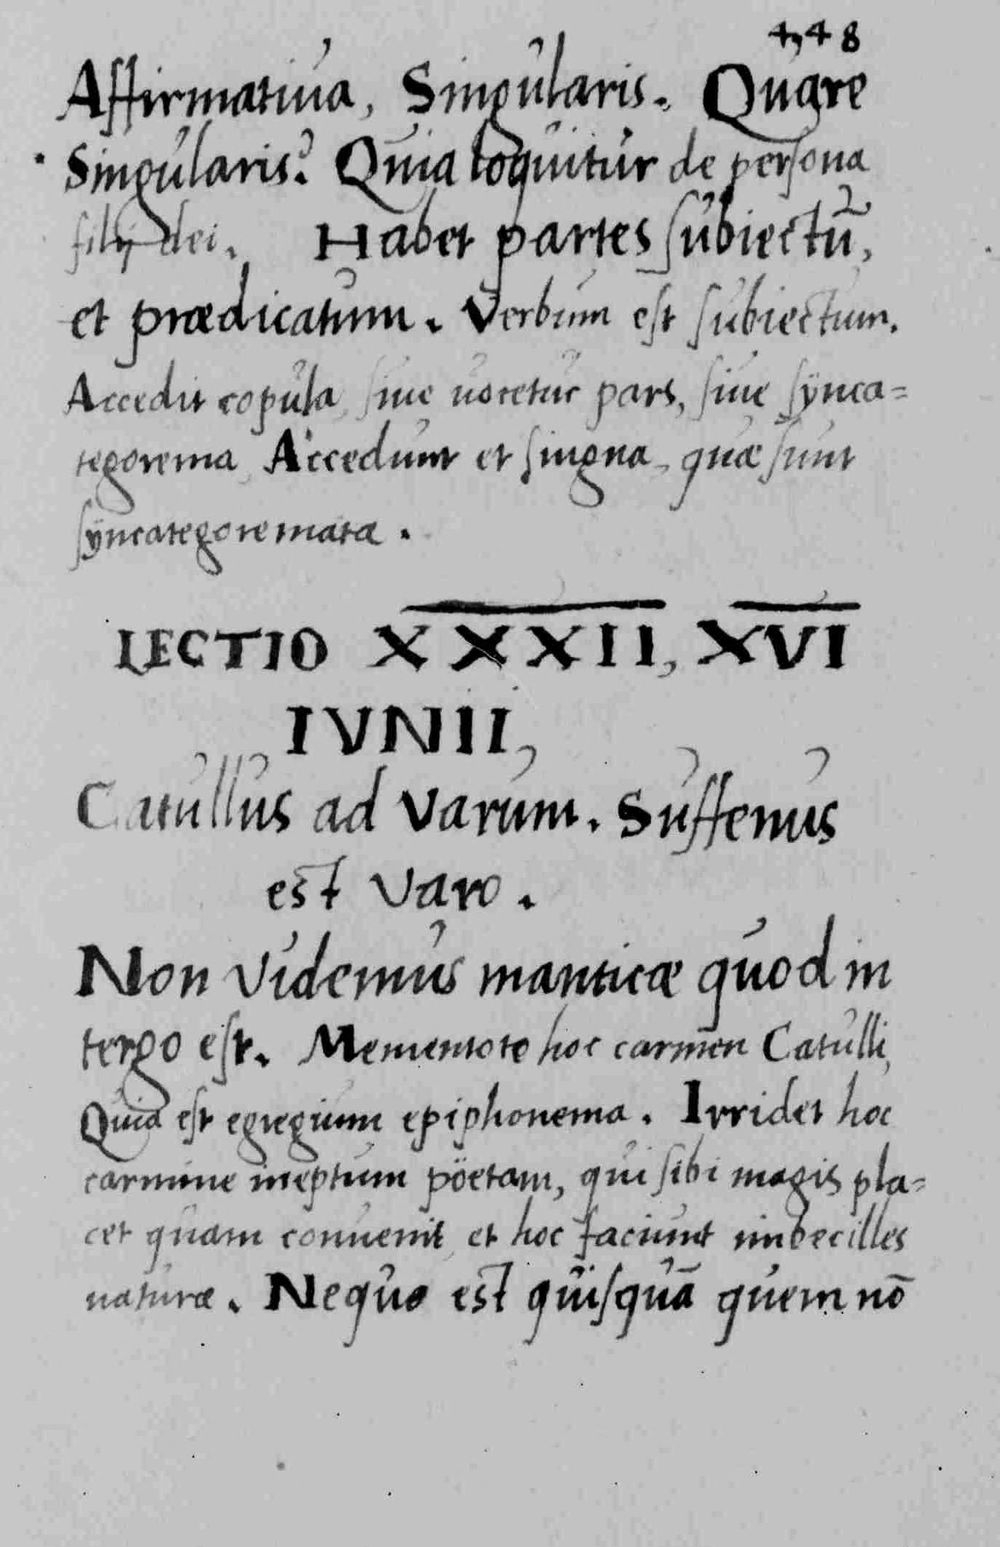 4,48
Affirmatiua, Singularis. Quare
Singularis? Quia loquitur de persona
filij dei. Habet partes subiectū,
et prædicatum. Verbum est subiectum.
Accedit copula, siue uocetur pars, siue sÿnca=
tegorema, Accedunt et singna, quæ sunt
sÿncategoremata.
LECTIO XXXII, XVI
IVNII,
Catullus ad Varum. Suffenus
est Varo.
Non Videmus manticæ quod in
tergo est. Mementote hoc carmen Catulli,
Quia est egregium epiphonema. Irridet hoc
carmine ineptum pöetam, qui sibi magis pla=
cet quam conuenit, et hoc faciunt imbecilles
naturæ. Neque est quisquā quem nō